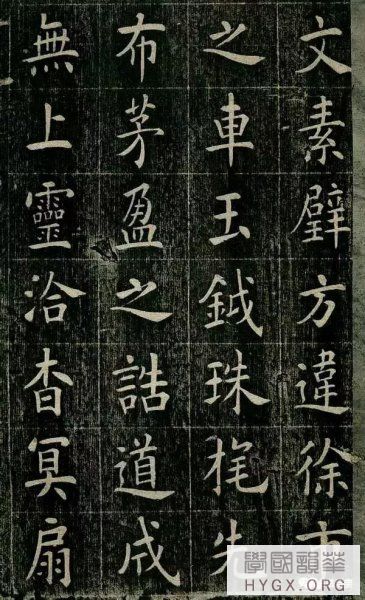 文素璧方違徐市
之車玉鉞珠旄朱
布茅盈之誥道成
無上靈洽杳冥扇
學國韻華
HYGX.ORG